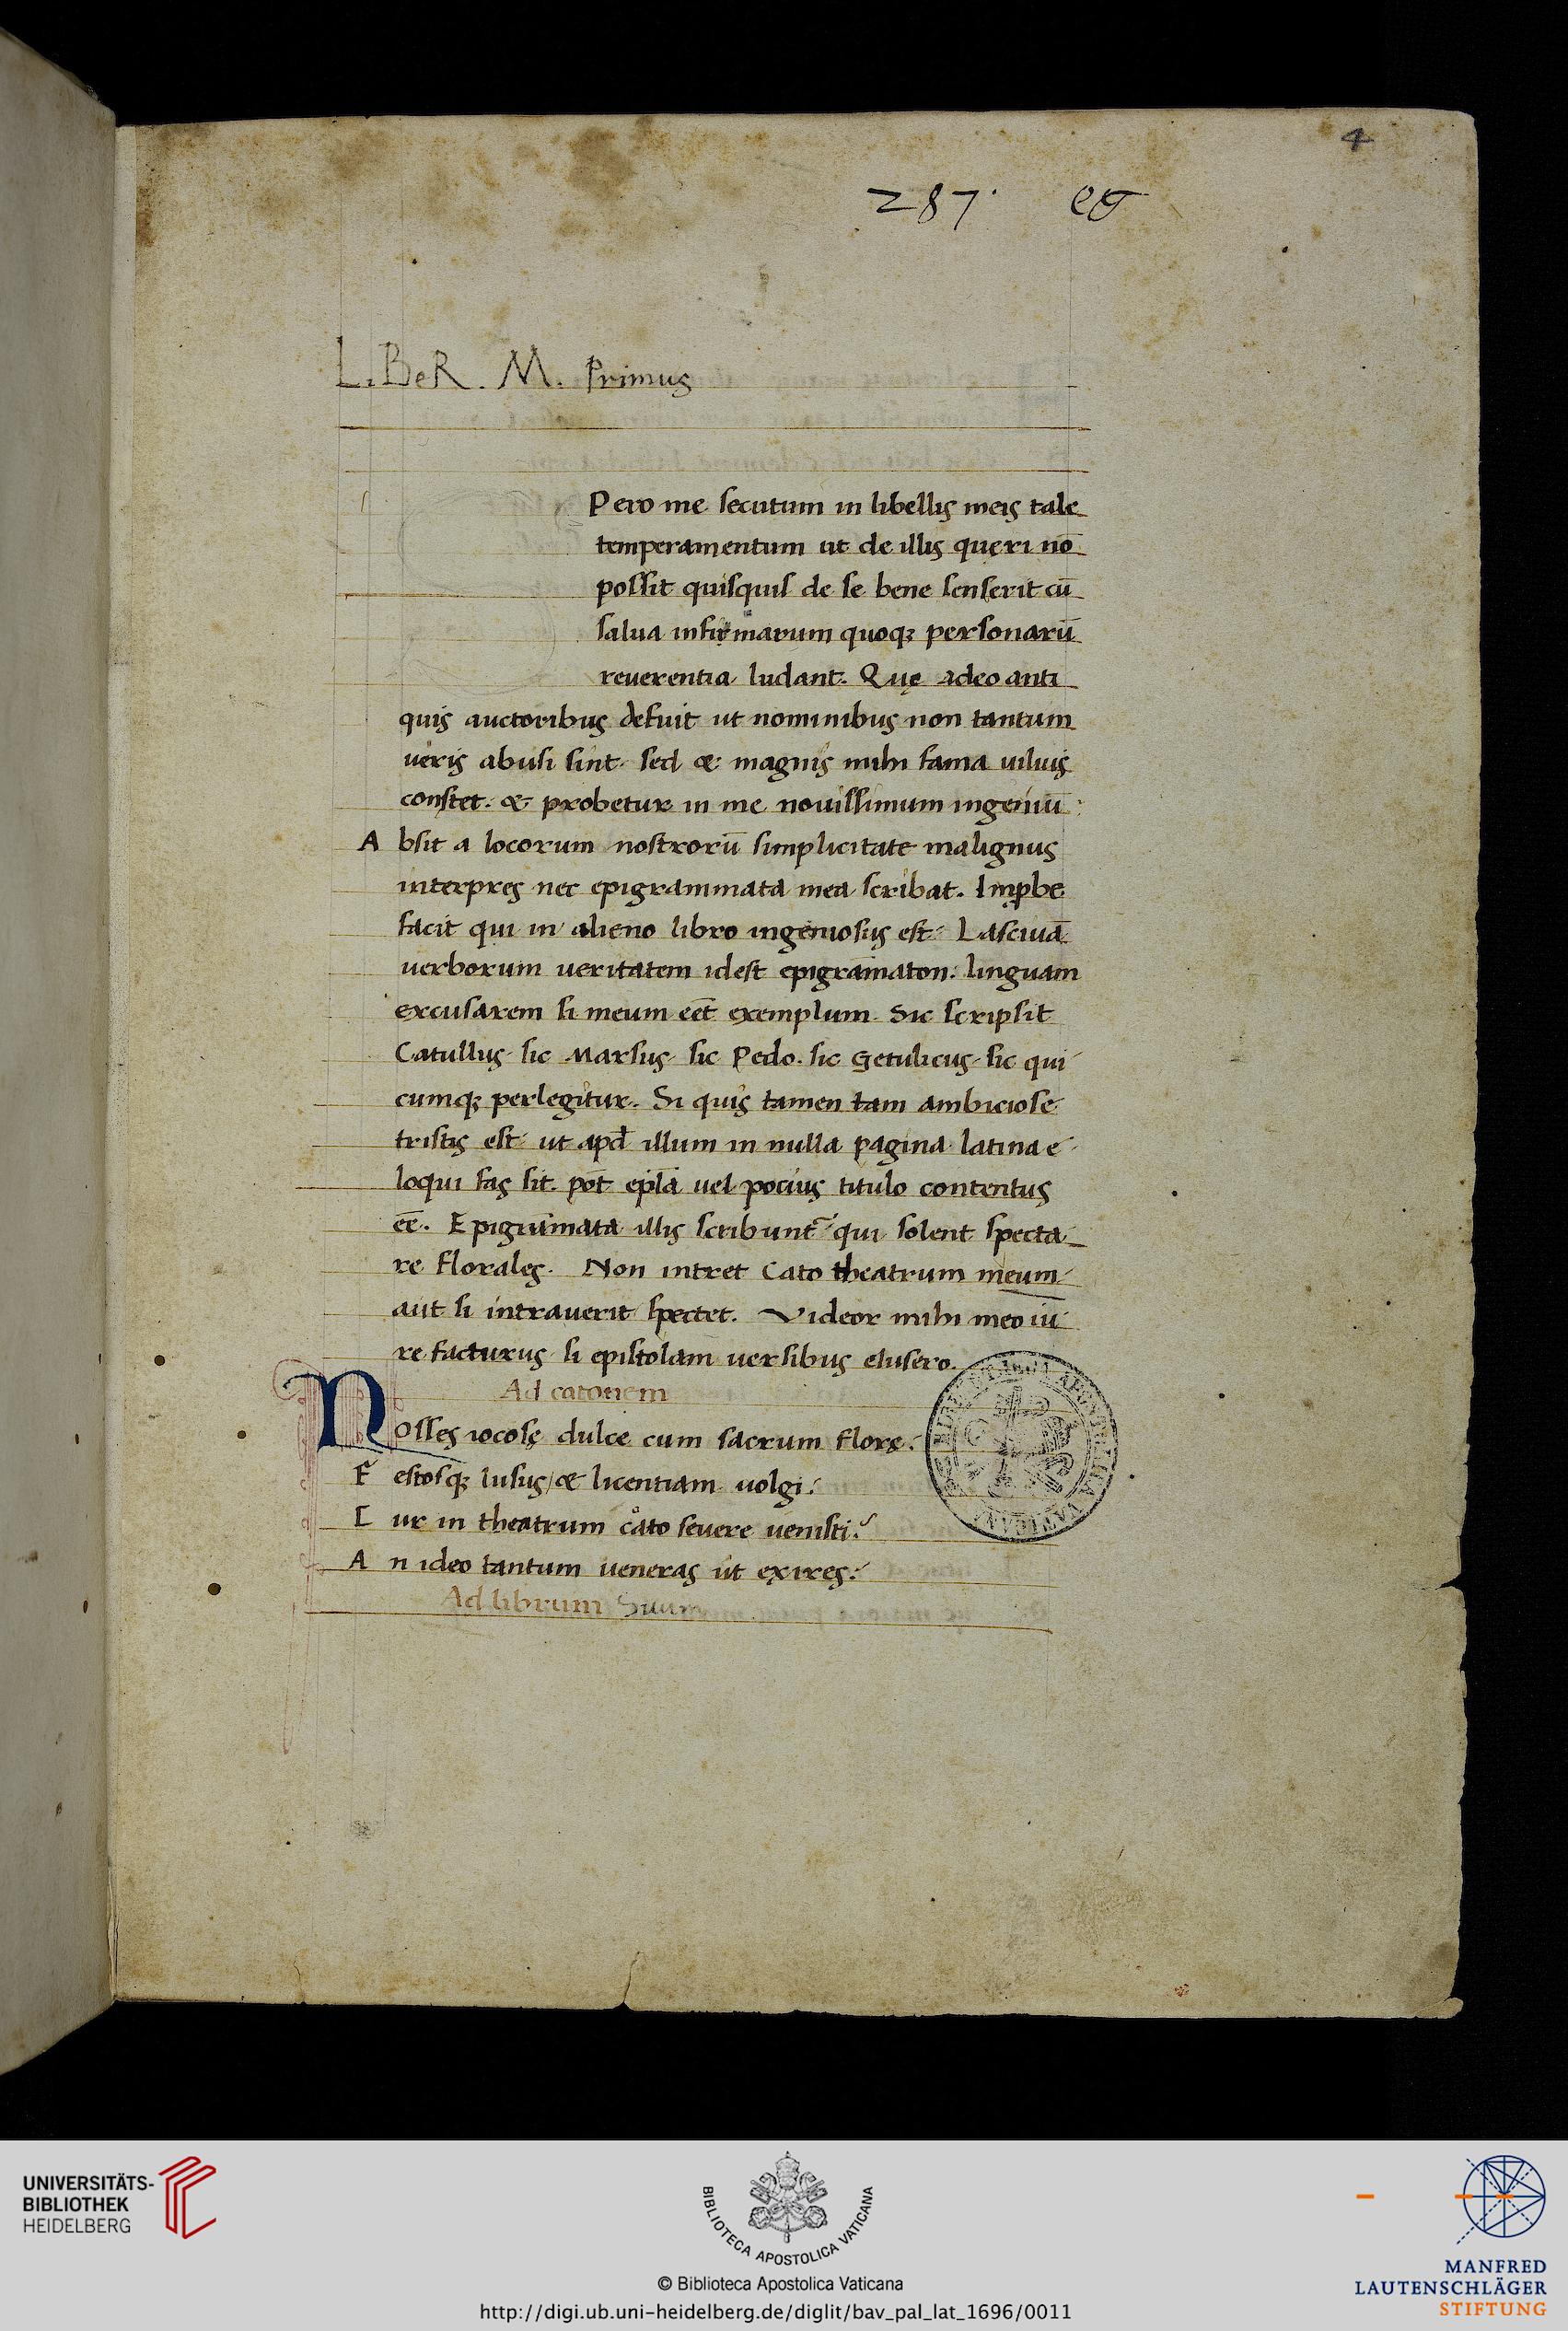 4
287. eσ
LiBeR. M. Primus
Pero me secutum in libellis meis tale
temperamentum ut de illis quęri nō
possit quisquis de se bene senserit cū
salua infirmarum quoqꝫ personarū
reuerentia ludant. Quę adeo anti
quis auctoribus defuit ut nominibus non tantum
ueris abusi sint. sed & magnis mihi fama uiluis
constet. & probetur in me nouissimum ingeniū:
A bsit a locorum nostrorū simplicitate malignus
interpres nec epigrammata mea scribat. Imꝓbe
facit qui in alieno libro ingeniosus est. Lasciuā
uerborum ueritatem idest epigramaton. linguam
excusarem si meum eēt exemplum. Sic scripsit
Catullus. sic Marsus. sic Pedo. sic Getulicus. sic qui
cumqꝫ perlegitur. Si quis tamen tam ambiciose
tristis est. ut apd̄ illum in nulla pagina latina e
loqui fas sit. pōt epl̄a uel pocius titulo contentus
eē. Epigrāmata illis scribunt᷑ qui solent specta
re florales. Non intret Cato theatrum meum
aut si intrauerit spectet. Videor mihi meo iu
re facturus si epistolam uersibus clusero.
Ad catonem
Nosses iocosę dulce cum sacrum florę.
F estosqꝫ lusus/& licentiam uolgi.
C ur in theatrum cato seuere uenisti?
A n ideo tantum ueneras ut exires.
Ad librum Suum
UNIVERSITÄTS-
BIBLIOTHEK
HEIDELBERG
BIBLIOTECA APOSTOLICA VATICANA
© Biblioteca Apostolica Vaticana
http://digi.ub.uni-heidelberg.de/diglit/bav_pal_lat_1696/0011
MANFRED
LAUTENSCHLÄGER
STIFTUNG